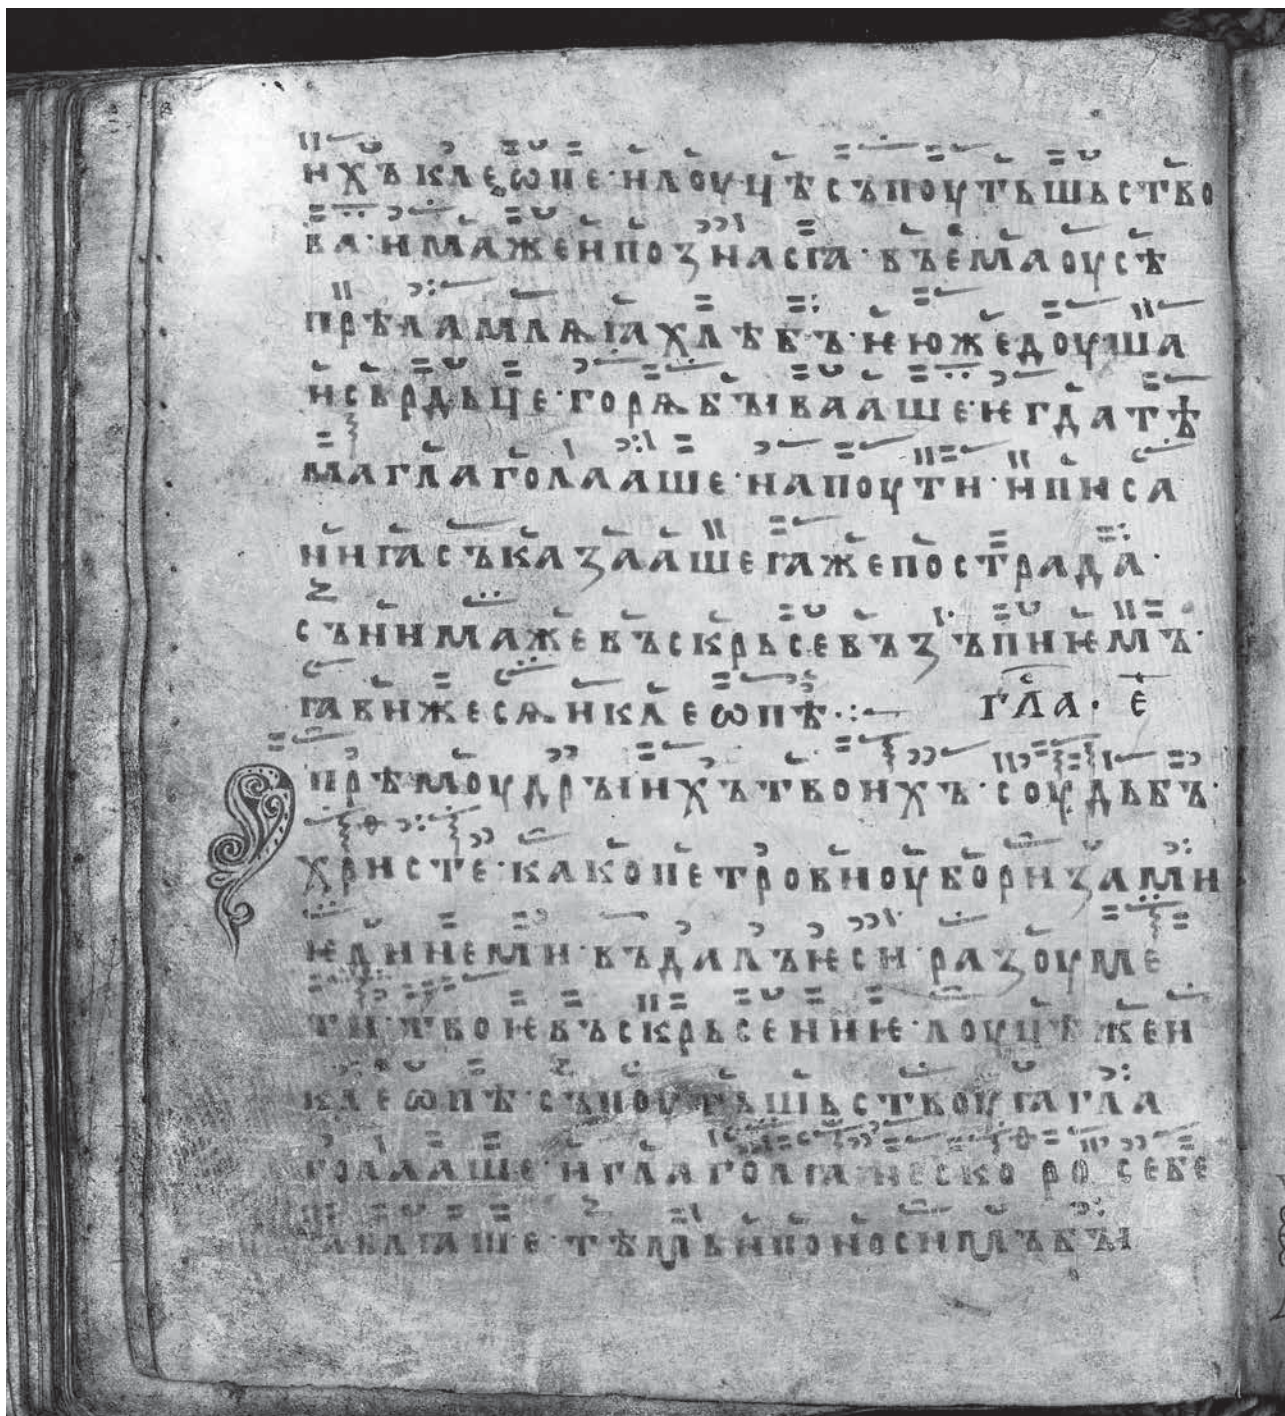 ихъ клеѡпе · и лоуцѣ съпоутьшьство
ва · има же и познасѧ · въ емаоусѣ
прѣламлѧꙗ хлѣбъ · ѥюже доуша
и сьрдьце · горѧ бывааше ѥгда тѣ
ма глаголааше · на поути · и писа
ниꙗ съказааше ꙗже пострада ·
съ нима же въскрьсе възъпиѥмъ ·
ꙗви же сѧ и клеѡпѣ · :—
гл҃а · е҃
прѣмоудрыихъ твоихъ · соудьбъ ·
христе · како петрови оубо ризами
ѥдинеми · въдалъ ѥси · разоуме
ти · твоѥ въскрьсениѥ · лоуцѣ же и
клеѡпѣ · съпоутьшьствоуꙗ гла
голааше · и глаголꙗ не скоро себе
ꙗвлꙗше · тѣмь и поносимъ бы